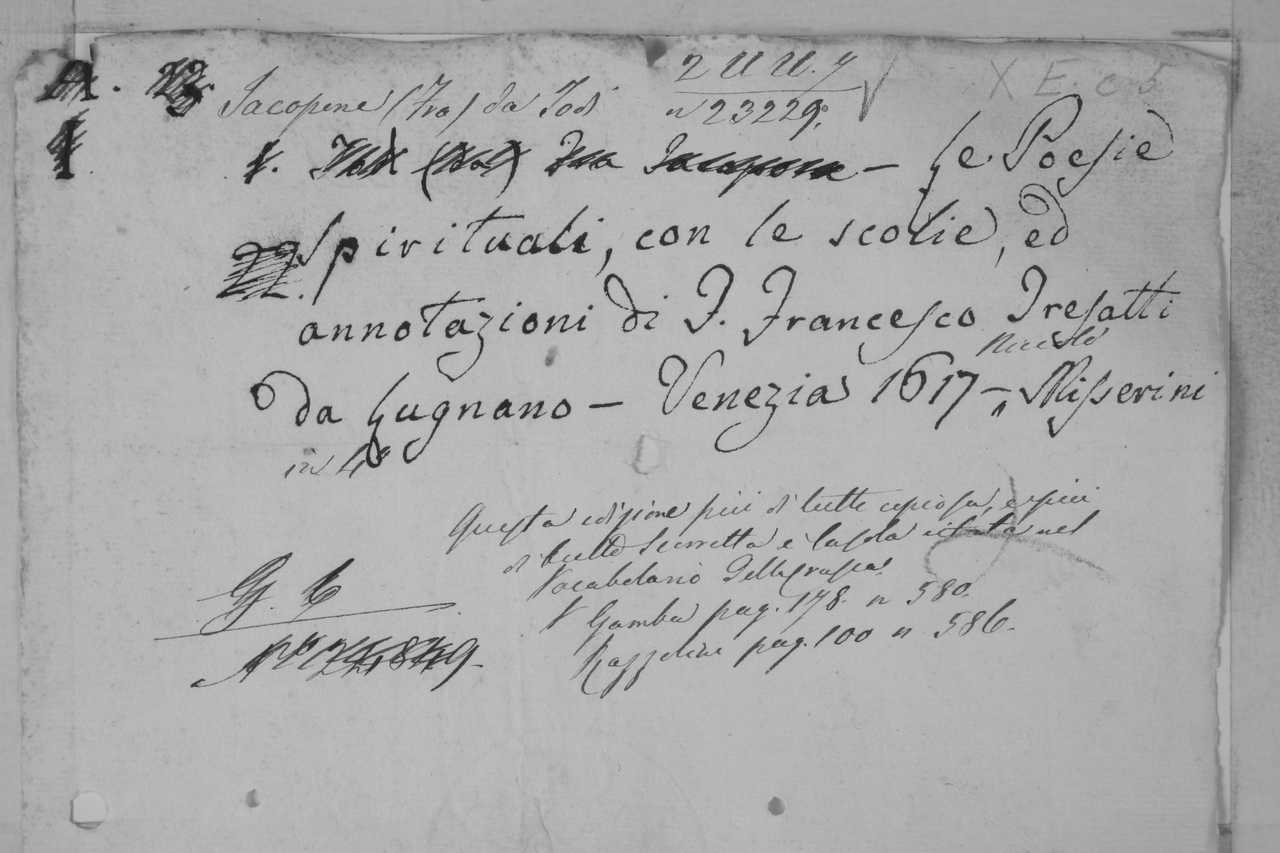 2 U U. 7
X E. c 5
Jacopone (Fra) da Todi n 23229.
Le Poesie
Spirituali, con le scolie, ed
annotazioni di F. Francesco Tresatti
Niccolò
da Lugnano – Venezia 1617 – Misserini
in 4°
Questa edizione più di tutte copiosa, e più
di tutte scorretta è la sola citata nel
Vocabolario della Crusca.
V Gamba pag. 178. n 580.
Razzolini pag. 100 n 586.
G. C